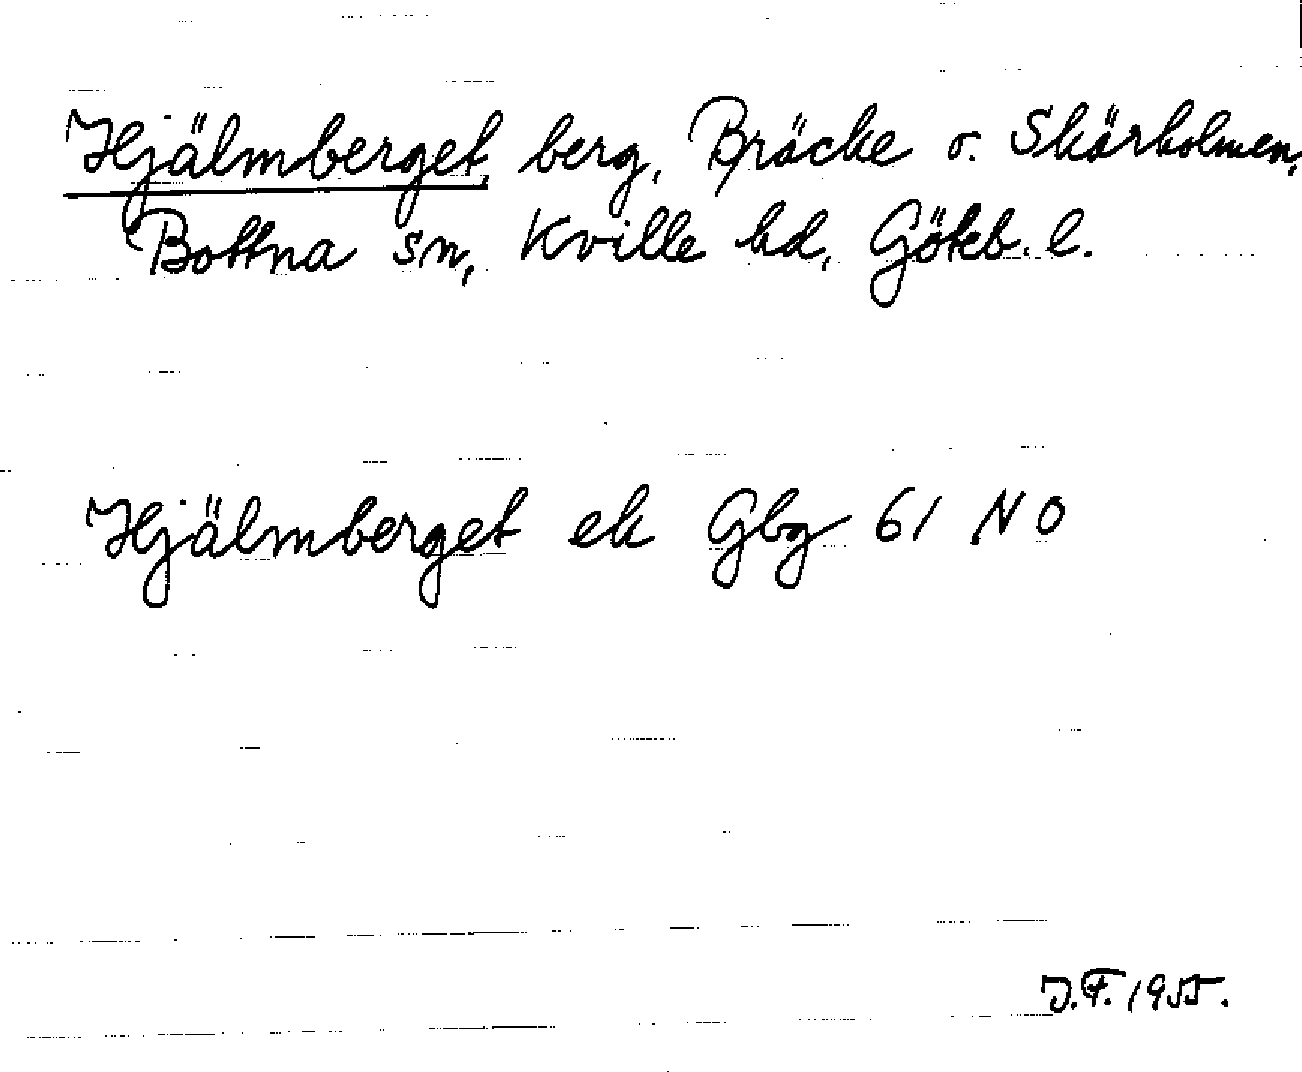 Hjälmberget, berg, Bräcke o. Skärholmen,
Bottna sn, Kville hd, Göteb. l.
Hjälmberget ek Gbg 61 NO
J.F. 1955.